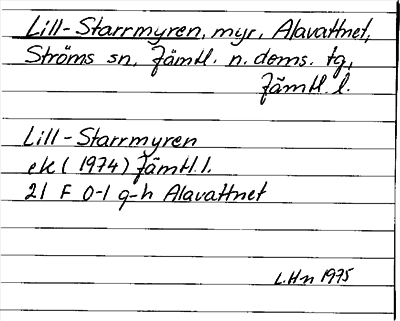 Lill-Starrmyren, myr, Alavattnet,
Ströms sn, Jämtl. n. doms. tg,
Jämtl. l.
Lill-Starrmyren
ek (1974) Jämtl. l.
21 F 0-1 g-h Alavattnet
L.Hn 1975